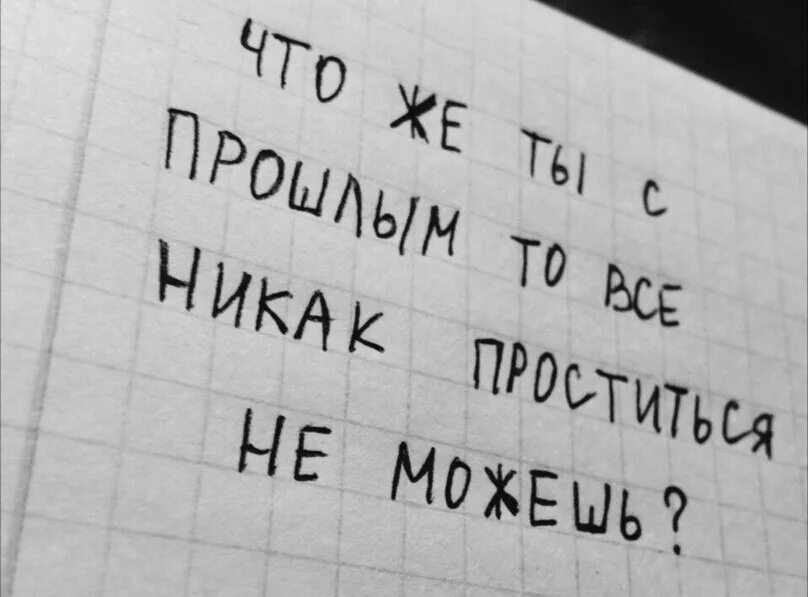 ЧТО ЖЕ ТЫ С
ПРОШЛЫМ ТО ВСЕ
НИКАК ПРОСТИТЬСЯ
НЕ МОЖЕШЬ?